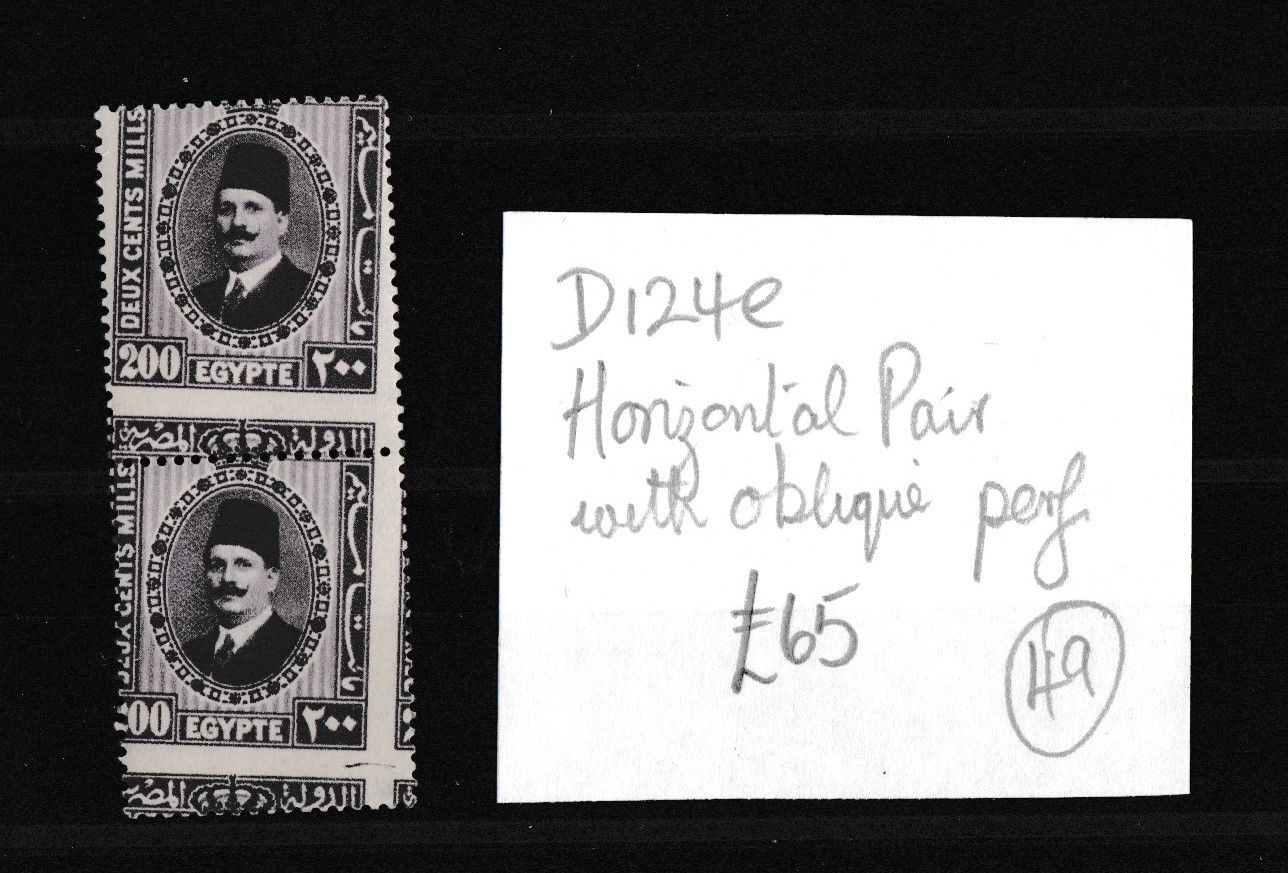 DEUX CENTS MILLS
200
EGYPTE
٢٠٠
الدولة المصرية
CENTS MILLS
00
EGYPTE
٢٠٠
الدولة المصرية
D124e
Horizontal Pair
with oblique perf
£65
49